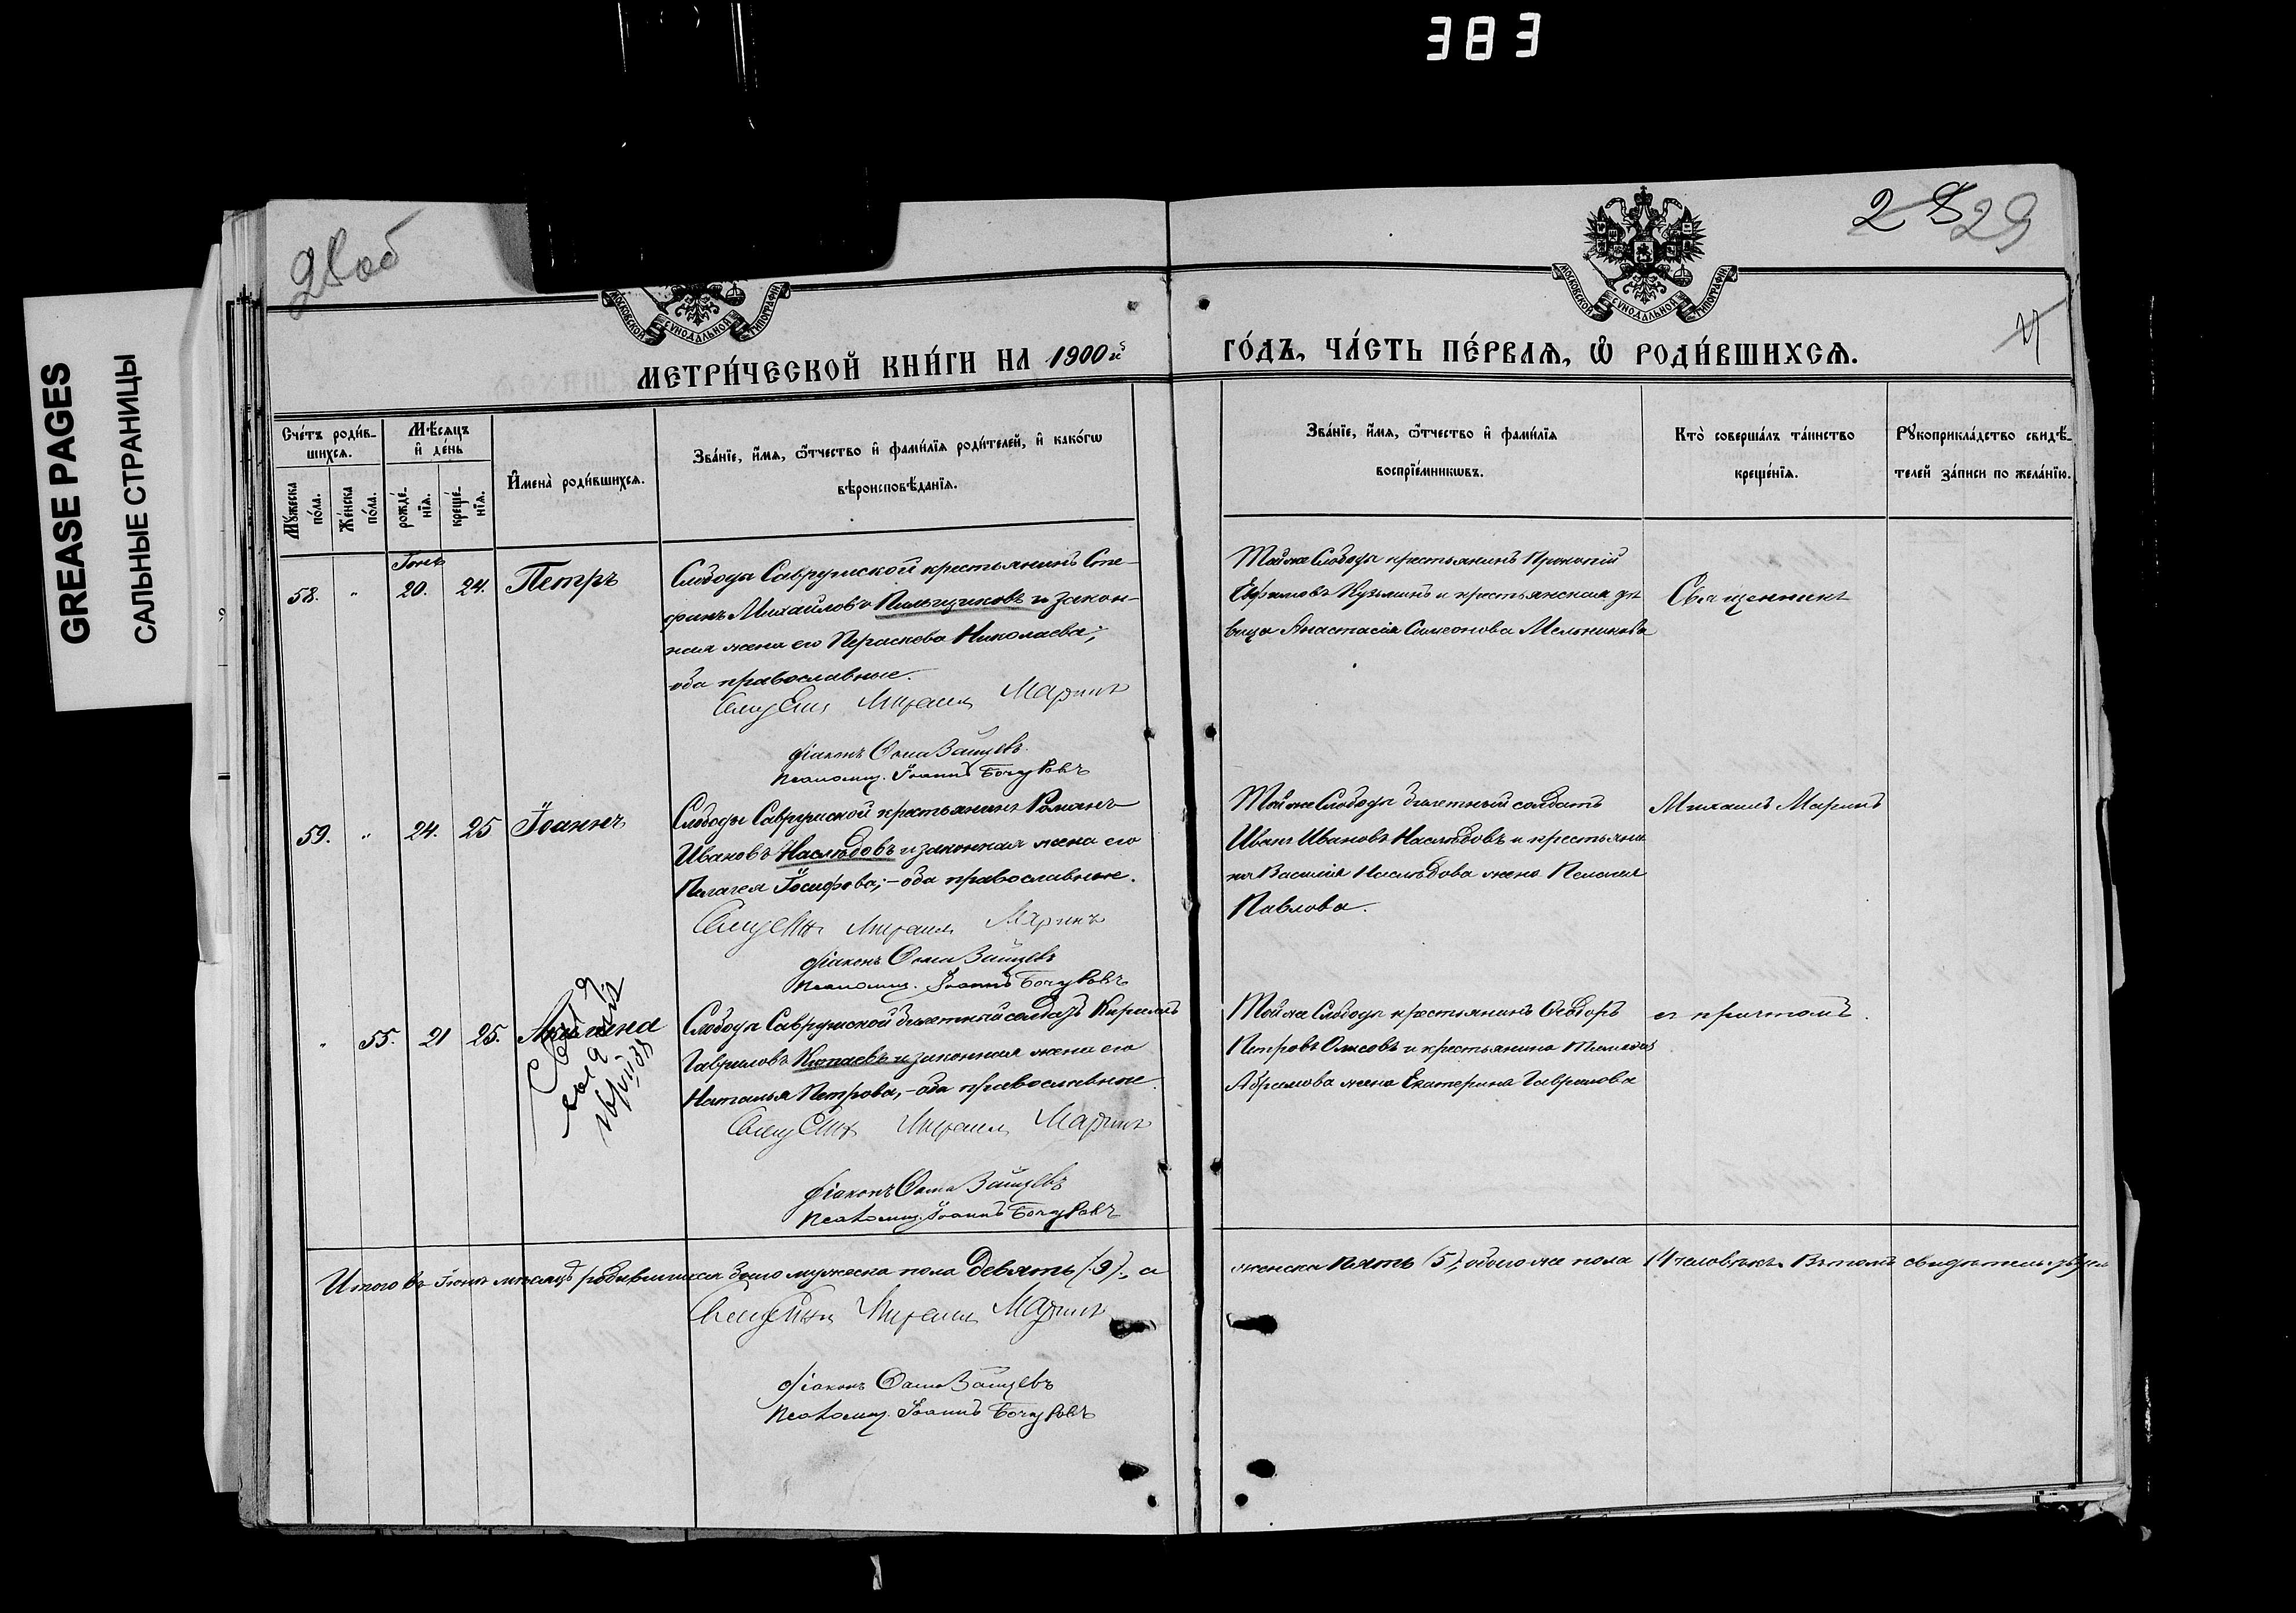 383
GREASE PAGES
САЛЬНЫЕ СТРАНИЦЫ
28об
28 29
МОСКОВСКОЙ СУНОДАЛЬНОЙ ТИПОГРАФІИ
МОСКОВСКОЙ СУНОДАЛЬНОЙ ТИПОГРАФІИ
МЕТРИ́ЧЕСКОЙ КНИ́ГИ НА 1900й
ГО́ДЪ, ЧА́СТЬ ПЕ́РВАѦ, Ѡ҆ РОДИ́ВШИХСѦ.
Сче́тъ роди́в-
шихсѧ.
Мꙋ́жеска по́ла.
Же́нска по́ла.
Мѣ́сѧцъ
и҆ де́нь
рожде́-
нїѧ.
креще́-
нїѧ.
И҆мена̀ роди́вшихсѧ.
Зва́нїе, и҆́мѧ, ѻ҆́тчество и҆ фамі́лїѧ роди́телей, и҆ како́гѡ
вѣроисповѣ́данїѧ.
Зва́нїе, и҆́мѧ, ѻ҆́тчество и҆ фамі́лїѧ
воспрїе́мникѡвъ.
Кто̀ соверша́лъ та́инство
креще́нїѧ.
Рꙋкоприкла́дство свидѣ́-
телей за́писи по жела́нїю.
Іюнь
58. " 20. 24. Петръ
Слободы Саврушской крестьянинъ Сте-
фанъ Михайловъ Пильщиковъ и закон-
ная жена его Параскева Николаева;
оба православные.
Священ Михаилъ Маринъ
Діаконъ Ѳома Зайцевъ
Псаломщ. Іоаннъ Бочкаревъ
Тойже Слободы крестьянинъ Прокопій
Ефимовъ Кузьминъ и крестьянская дѣ
вица Анастасія Симеонова Мельникова
Священникъ
59. " 24. 25 Іоаннъ
Слободы Саврушской крестьянинъ Романъ
Ивановъ Наслѣдовъ и законная жена его
Пелагея Іосифова; – оба православные.
Михаилъ Маринъ
Діаконъ Ѳома Зайцевъ
Псаломщ. Іоаннъ
Тойже Слободы билетный солдатъ
Иванъ Ивановъ Наслѣдовъ и крестьяни
на Василія Наслѣдова жена Пелагія
Павлова.
Михаилъ Маринъ
" 55. 21 25. Акилина
Слободы Саврушской билетный солдатъ Кириллъ
Гавриловъ и законная жена его
Наталья Петрова, – оба православные.
Михаилъ Маринъ
Діаконъ Ѳома Зайцевъ
Псаломщ. Іоаннъ
Тойже Слободы крестьянинъ Ѳеодоръ
Петровъ и крестьянина
Абрамова жена Екатерина Гаврилова
съ причтомъ.
Итого въ Іюнѣ мѣсяцѣ родившихся было мужеска пола девять (9)., а
женска пять (5), обоего же пола 14 человѣкъ. Въ томъ свидѣтельствуемъ
Михаилъ Маринъ
Діаконъ Ѳома Зайцевъ
Псаломщ. Іоаннъ